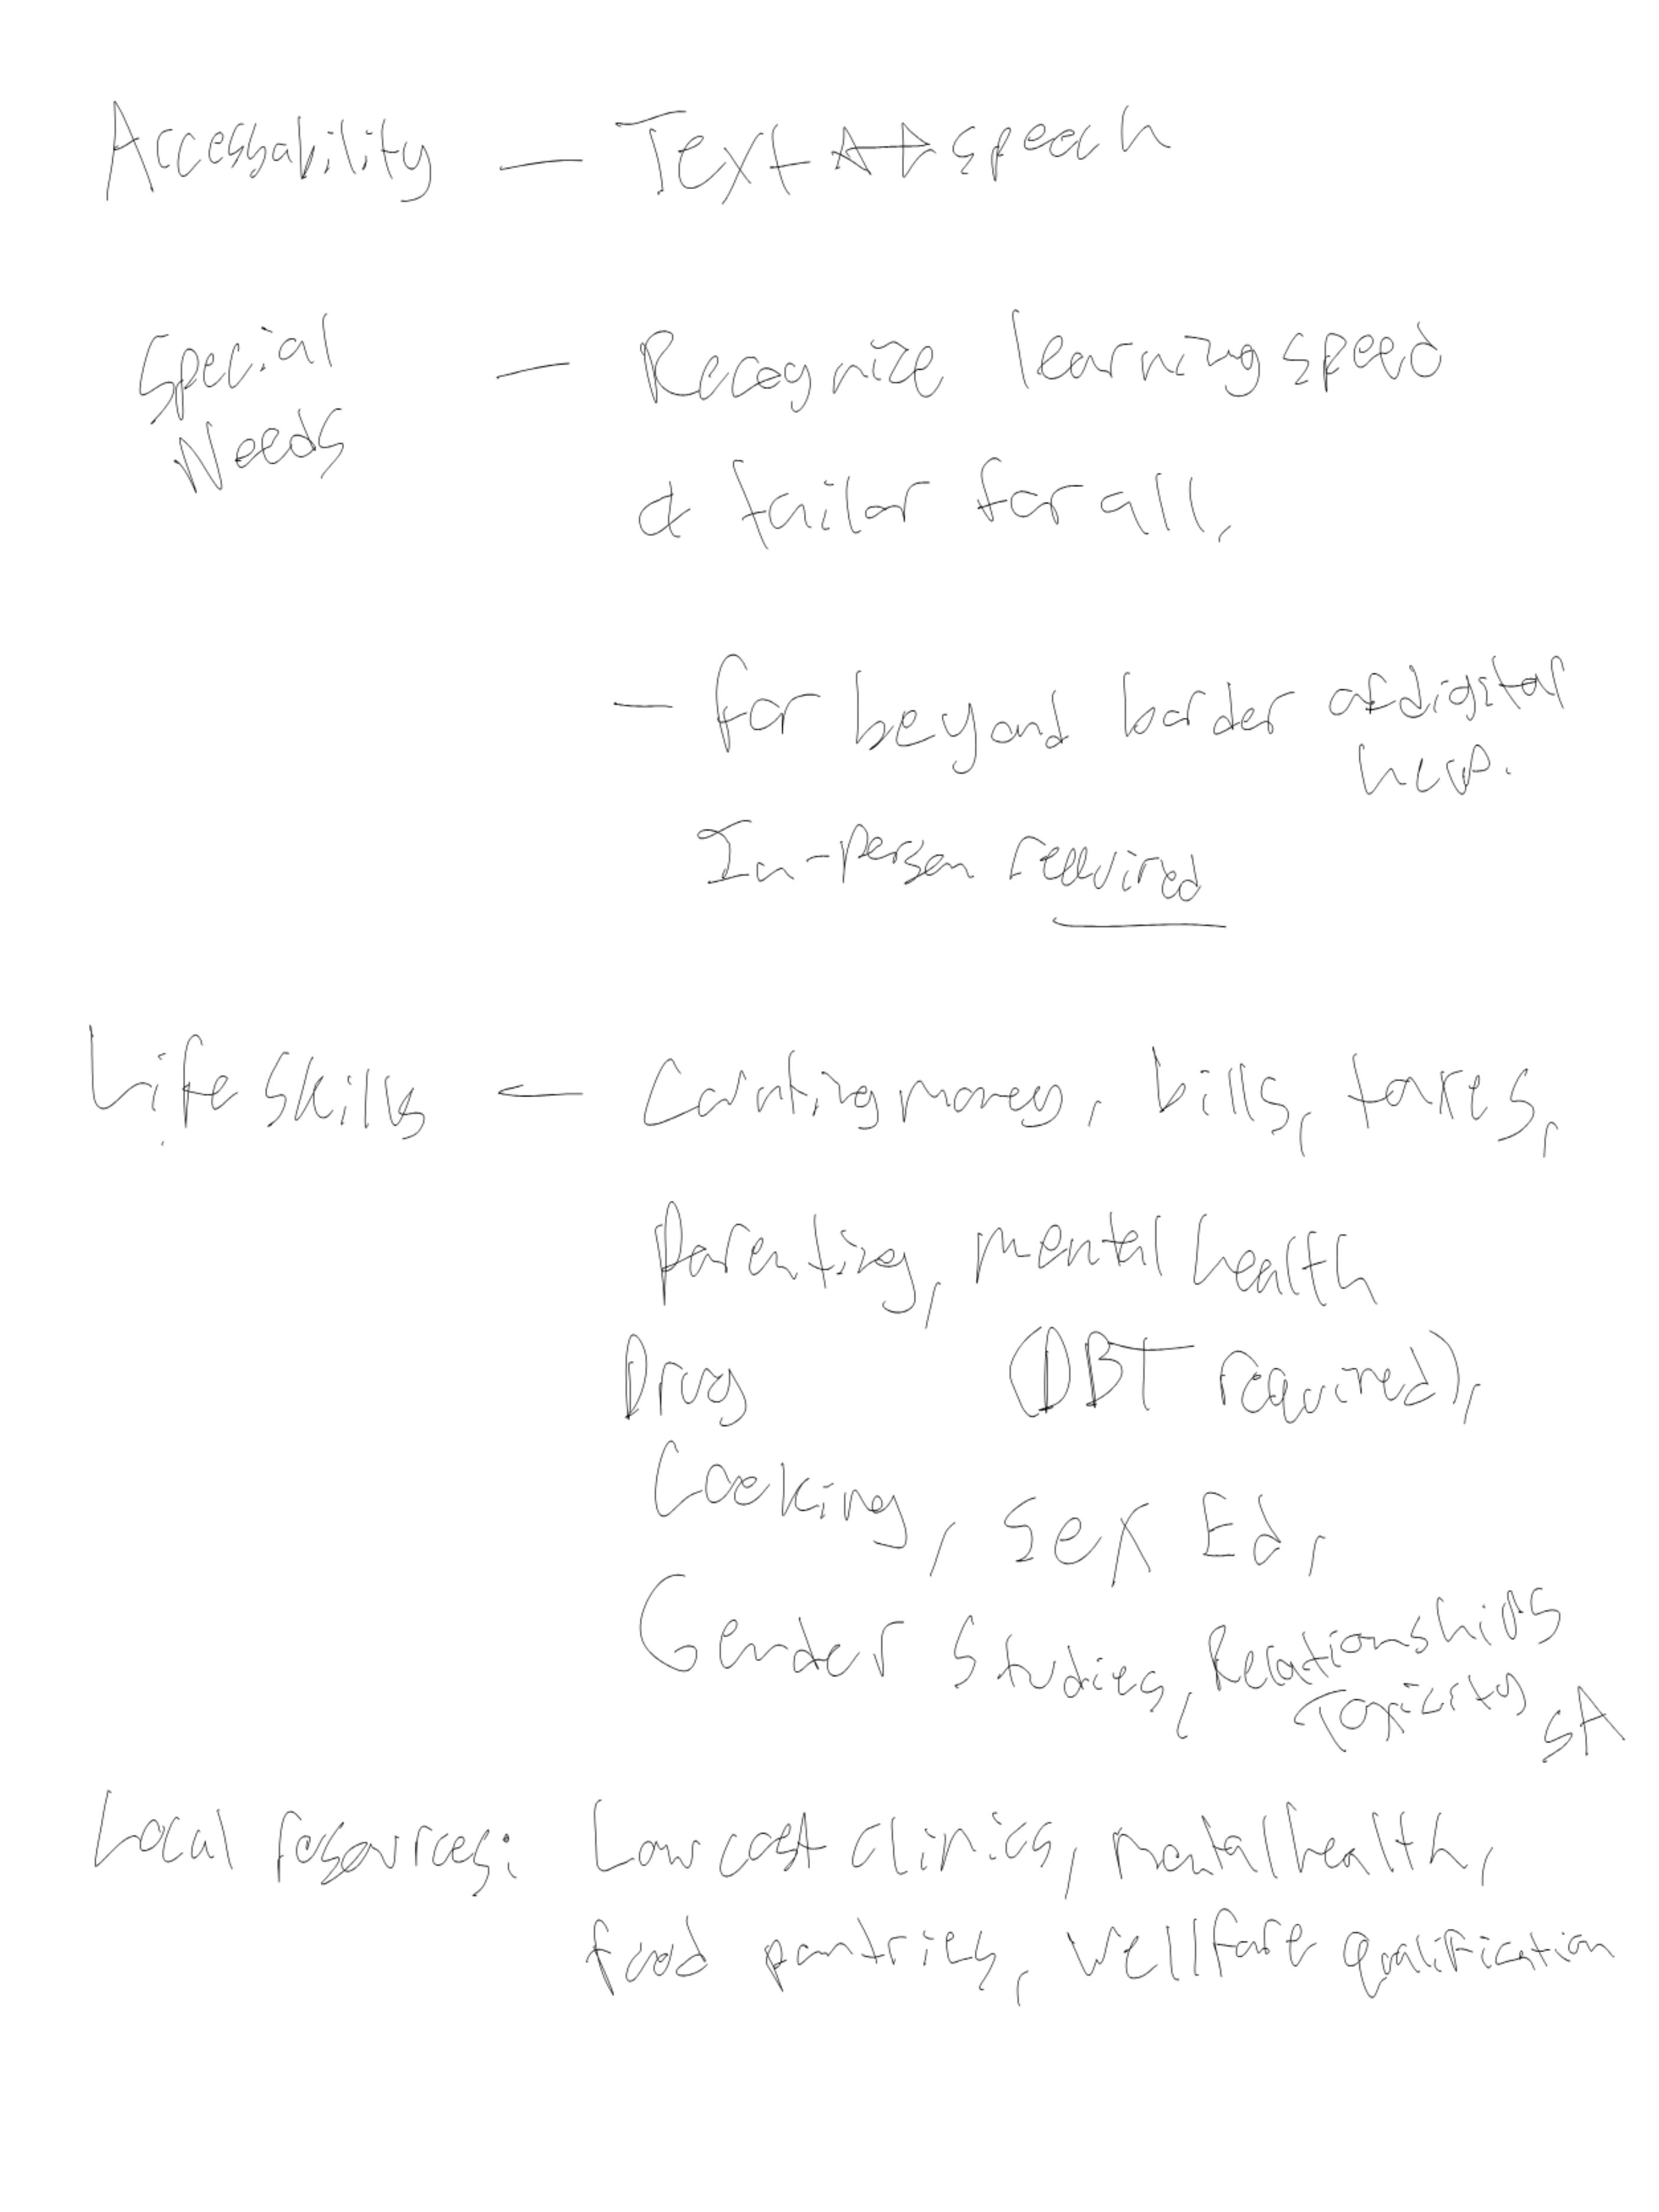 Accessability — Text ↔ speech
Special — Recognize learning speed
Needs
& tailor for all.
— for beyond border of digital
help.
In-person required
Life Skills — Counting money, bills, taxes,
Parenting, mental health
Drug (DBT required),
Cooking, Sex Ed,
Gender Studies, Relationships
Toxicity SA
Local resources: Low cost clinics, mental health,
food pantries, wellfare qualification